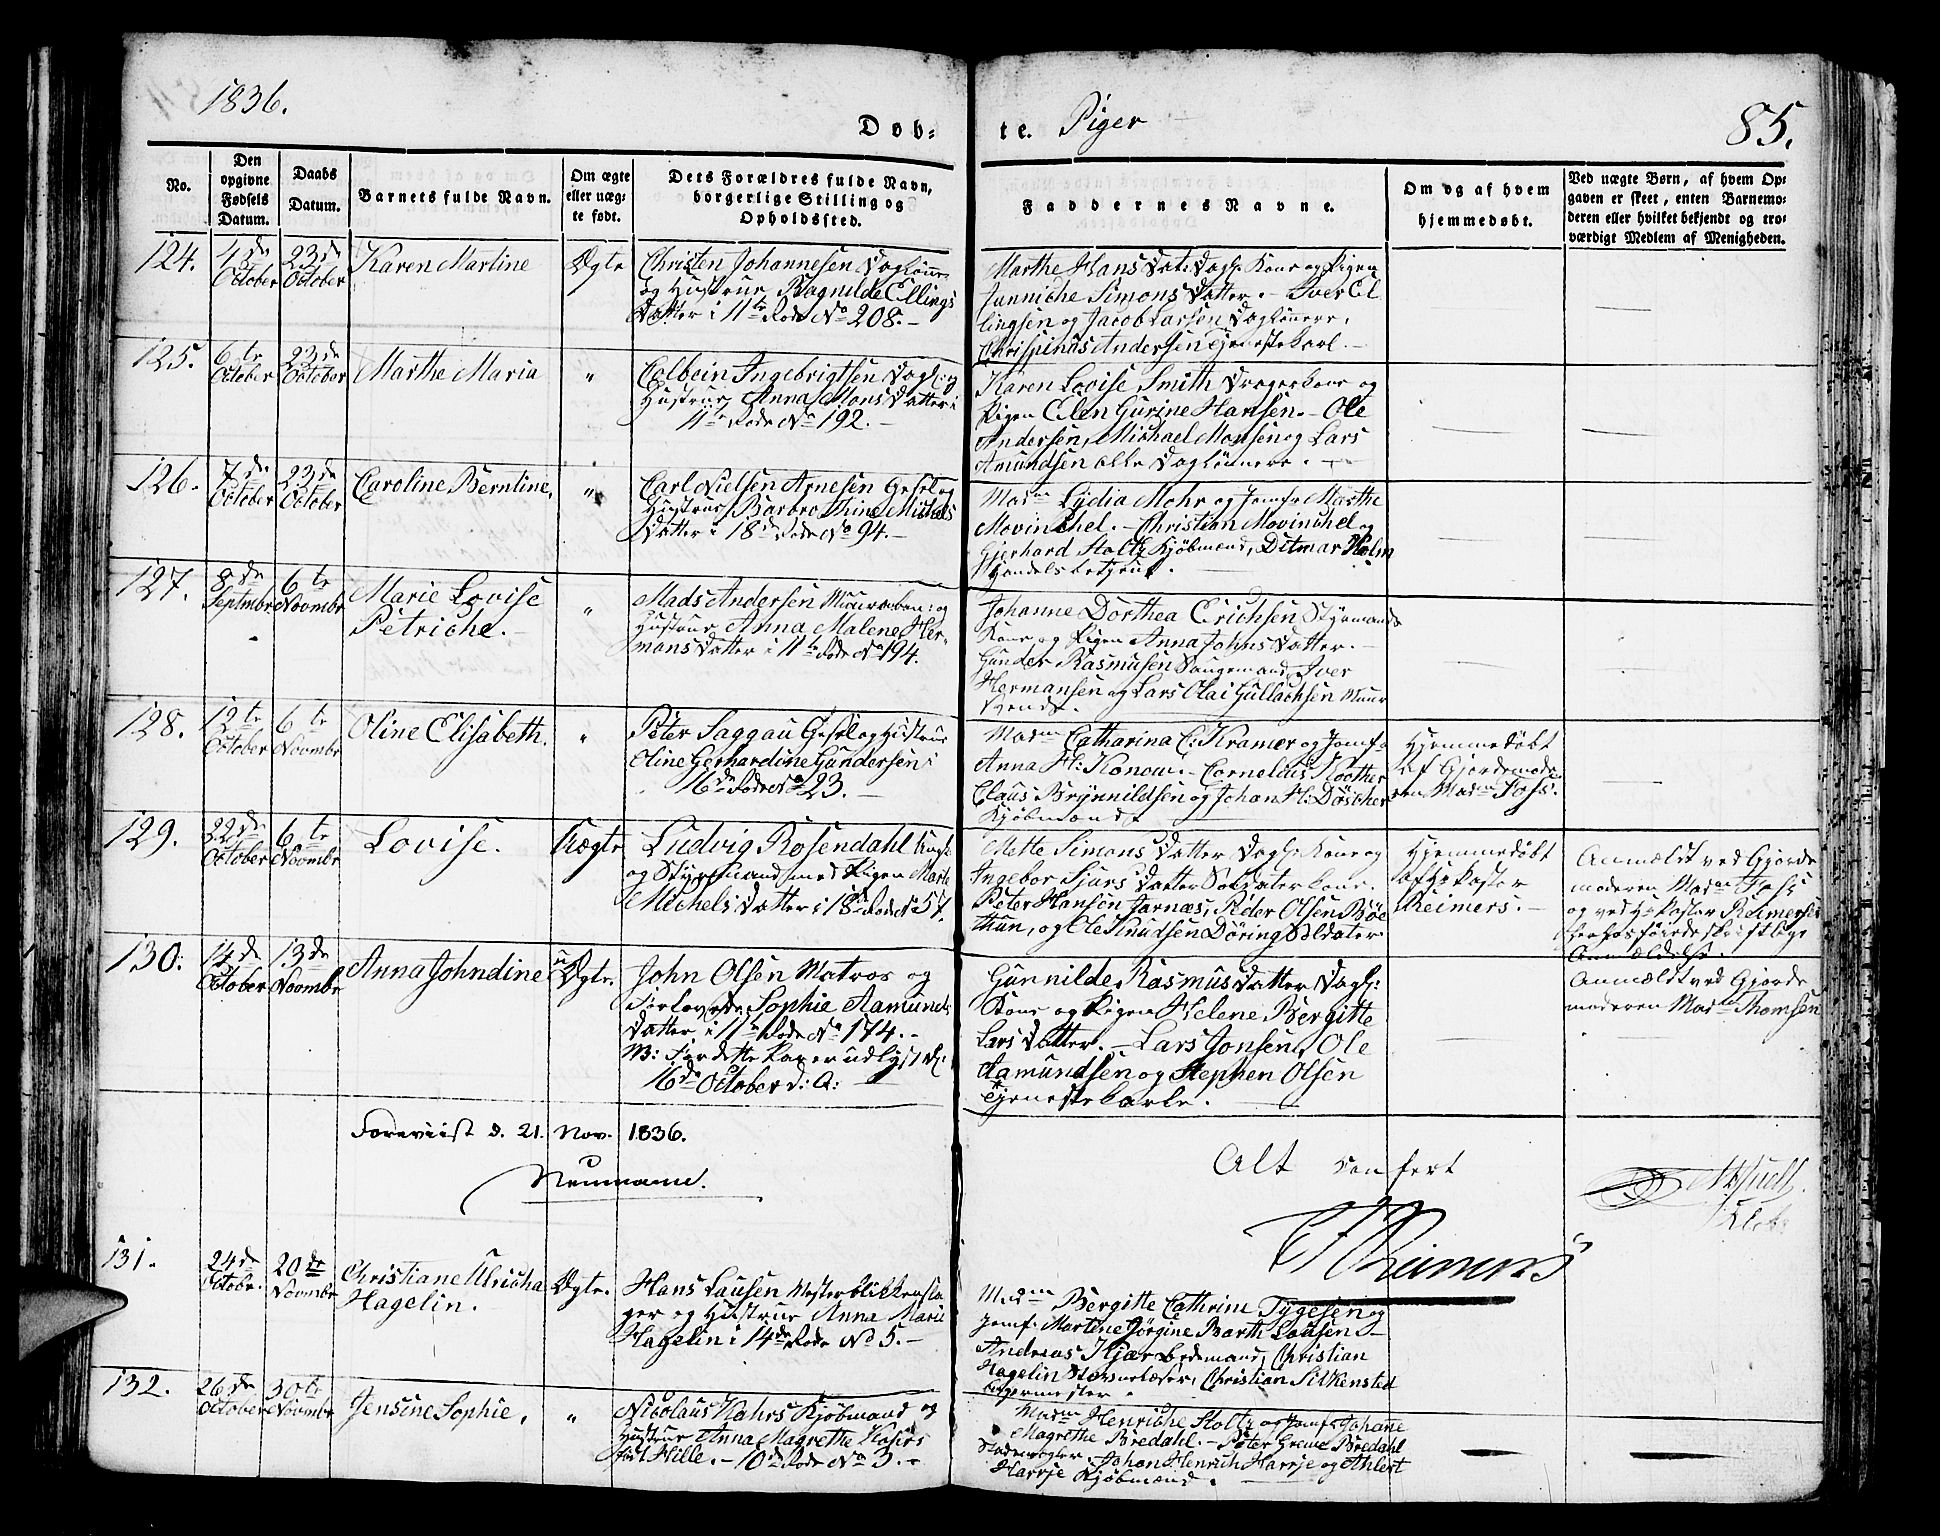 1836.
Döb-
te. Piger
85.
No.
Den opgivne Fødsels Datum.
Daabs Datum.
Barnets fulde Navn.
Om ægte eller uægte født.
Dets Forældres fulde Navn, borgerlige Stilling og Opholdssted.
Faddernes Navne.
Om og af hvem hjemmedøbt.
Ved uægte Børn, af hvem Opgaven er skeet, enten Barnemoderen eller hvilket bekjendt og troværdigt Medlem af Menigheden.
124.
4de October
23de October
Karen Martine
Ægte
Christen Johannesen Dagløn:
og Hustrue Ragnilde Ellings
Datter i 11te Rode No 208.-
Marthe Hans Dat: Dagl: Kone og Pigen
Janniche Simons Datter.- Iver El
lingsen og Jacob Larsen Daglönere,
Chrispinus Andersen Tjenestekarl.-
125.
6te October
23de October
Marthe Maria
"
Colbein Ingebrigtsen Dagl: og
Hustrue Anna Mons Datter i
11te Rode No 192.-
Karen Lovise Smith Dragerkone og
Pigen Elen Gurine Hansen.- Ole
Andersen, Michael Monsen og Lars
Amundsen alle Daglönnere.-
126.
7de October
23de October
Caroline Berntine,
"
Carl Nielsen Arnesen Gesel og
Hustrue Barbro Thine Michels
Datter i 18de Rode No 94.-
Madm Lydia Mohr og Jomf: Marthe
Movinchel.- Christian Movinchel og
Gjerhard Stoltz Kjöbmænd, Ditmar Holm
Handelsbetjent.
127.
8de Septmbr
6te Novmbr
Marie Lovise
Petriche.-
"
Mads Andersen Muurarbeu: og
Hustrue Anna Malene Her-
mans Datter i 11te Rode No 194.
Johanne Dorthea Erichsen Styrmands
Kone og Pigen Anna Johns Datter.-
Gunder Rasmusen Saugemand, Iver
Hermansen og Lars Olai Gullachsen Muur
svende.
128.
12te October
6te Novmbr
Oline Elisabeth.
"
Peter Saggau Gesel og Hustrue
Oline Gerhardine Gundersen i
16de Rode No 23.-
Madm Catharina C: Kramer og Jomf:
Anna H: Konow.- Cornelius Kooter
Claus Brynnildsen og Johan H: Döscher
Kjöbmænd
Hjemmedöbt
af Gjordemode
ren Madm Foss.
129.
22de October
6te Novmbr
Lovise.
Uægte
Ludvig Rosendahl
og Styrmand med Pigen Marte
Michels Datter i 18de Rode No 57.
Mette Simons Datter Dagl: Kone og
Ingebor Sjurs Datter Soldaterkone.
Peter Hansen Jarnæs, Peder Olsen Böe
thun, og Ole Knudsen Döring Soldater.
Hjemmedöbt
af Hr Pastor
Reimers.-
Anmældt ved Gjorde
moderen Madm Foss
og ved Hr Pastor Reimers
skriftlige
Anmældelse.
130.
14de October
13de Novmbr
Anna Johndine
uÆgte.
John Olsen Matros og
Forlovede Sophie Aamunds
Datter i 11te Rode No 174.-
NB: For dette Par er udlyst d:
16de October d: A:
Gunnilde Rasmus Datter Dagl:
Kone og Pigen Helene Bergitte
Lars Datter.- Lars Jonsen, Ole
Aamundsen og Stephen Olsen
Tjenestekarle.
Anmældt ved Gjorde
moderen Madm Thomsen
Foreviist d. 21. Nov. 1836.
Neumann.
Alt confert
Reimers
131.
24de Octobr.
20de Novmbr
Christiane Ulricha
Hagelin.
Ægte.
Hans Lausen Mesterblikkensla
ger og Hustrue Anna Marie
Hagelin i 14de Rode No 5.-
Madm Bergitte Cathrine Tygesen og
Jomf: Martine Jörgine Barth Lausen.-
Andreas Kjær Bedemand, Christian
Hagelin, Christian Silkensted
Bagermester.
132.
26de October
30te Novmbr
Jensine Sophie.
"
Nicolaus Kahrs Kjöbmand og
Hustrue Anna Magrethe Kahrs
föd Hille.- 10de Rode No 3.-
Madm Henriche Stoltz og Jomf: Johane
Magrethe Bredahl.- Peter Greve Bredahl
Johan Henrich Harrje og Ahlert
Harrje Kjöbmænd.